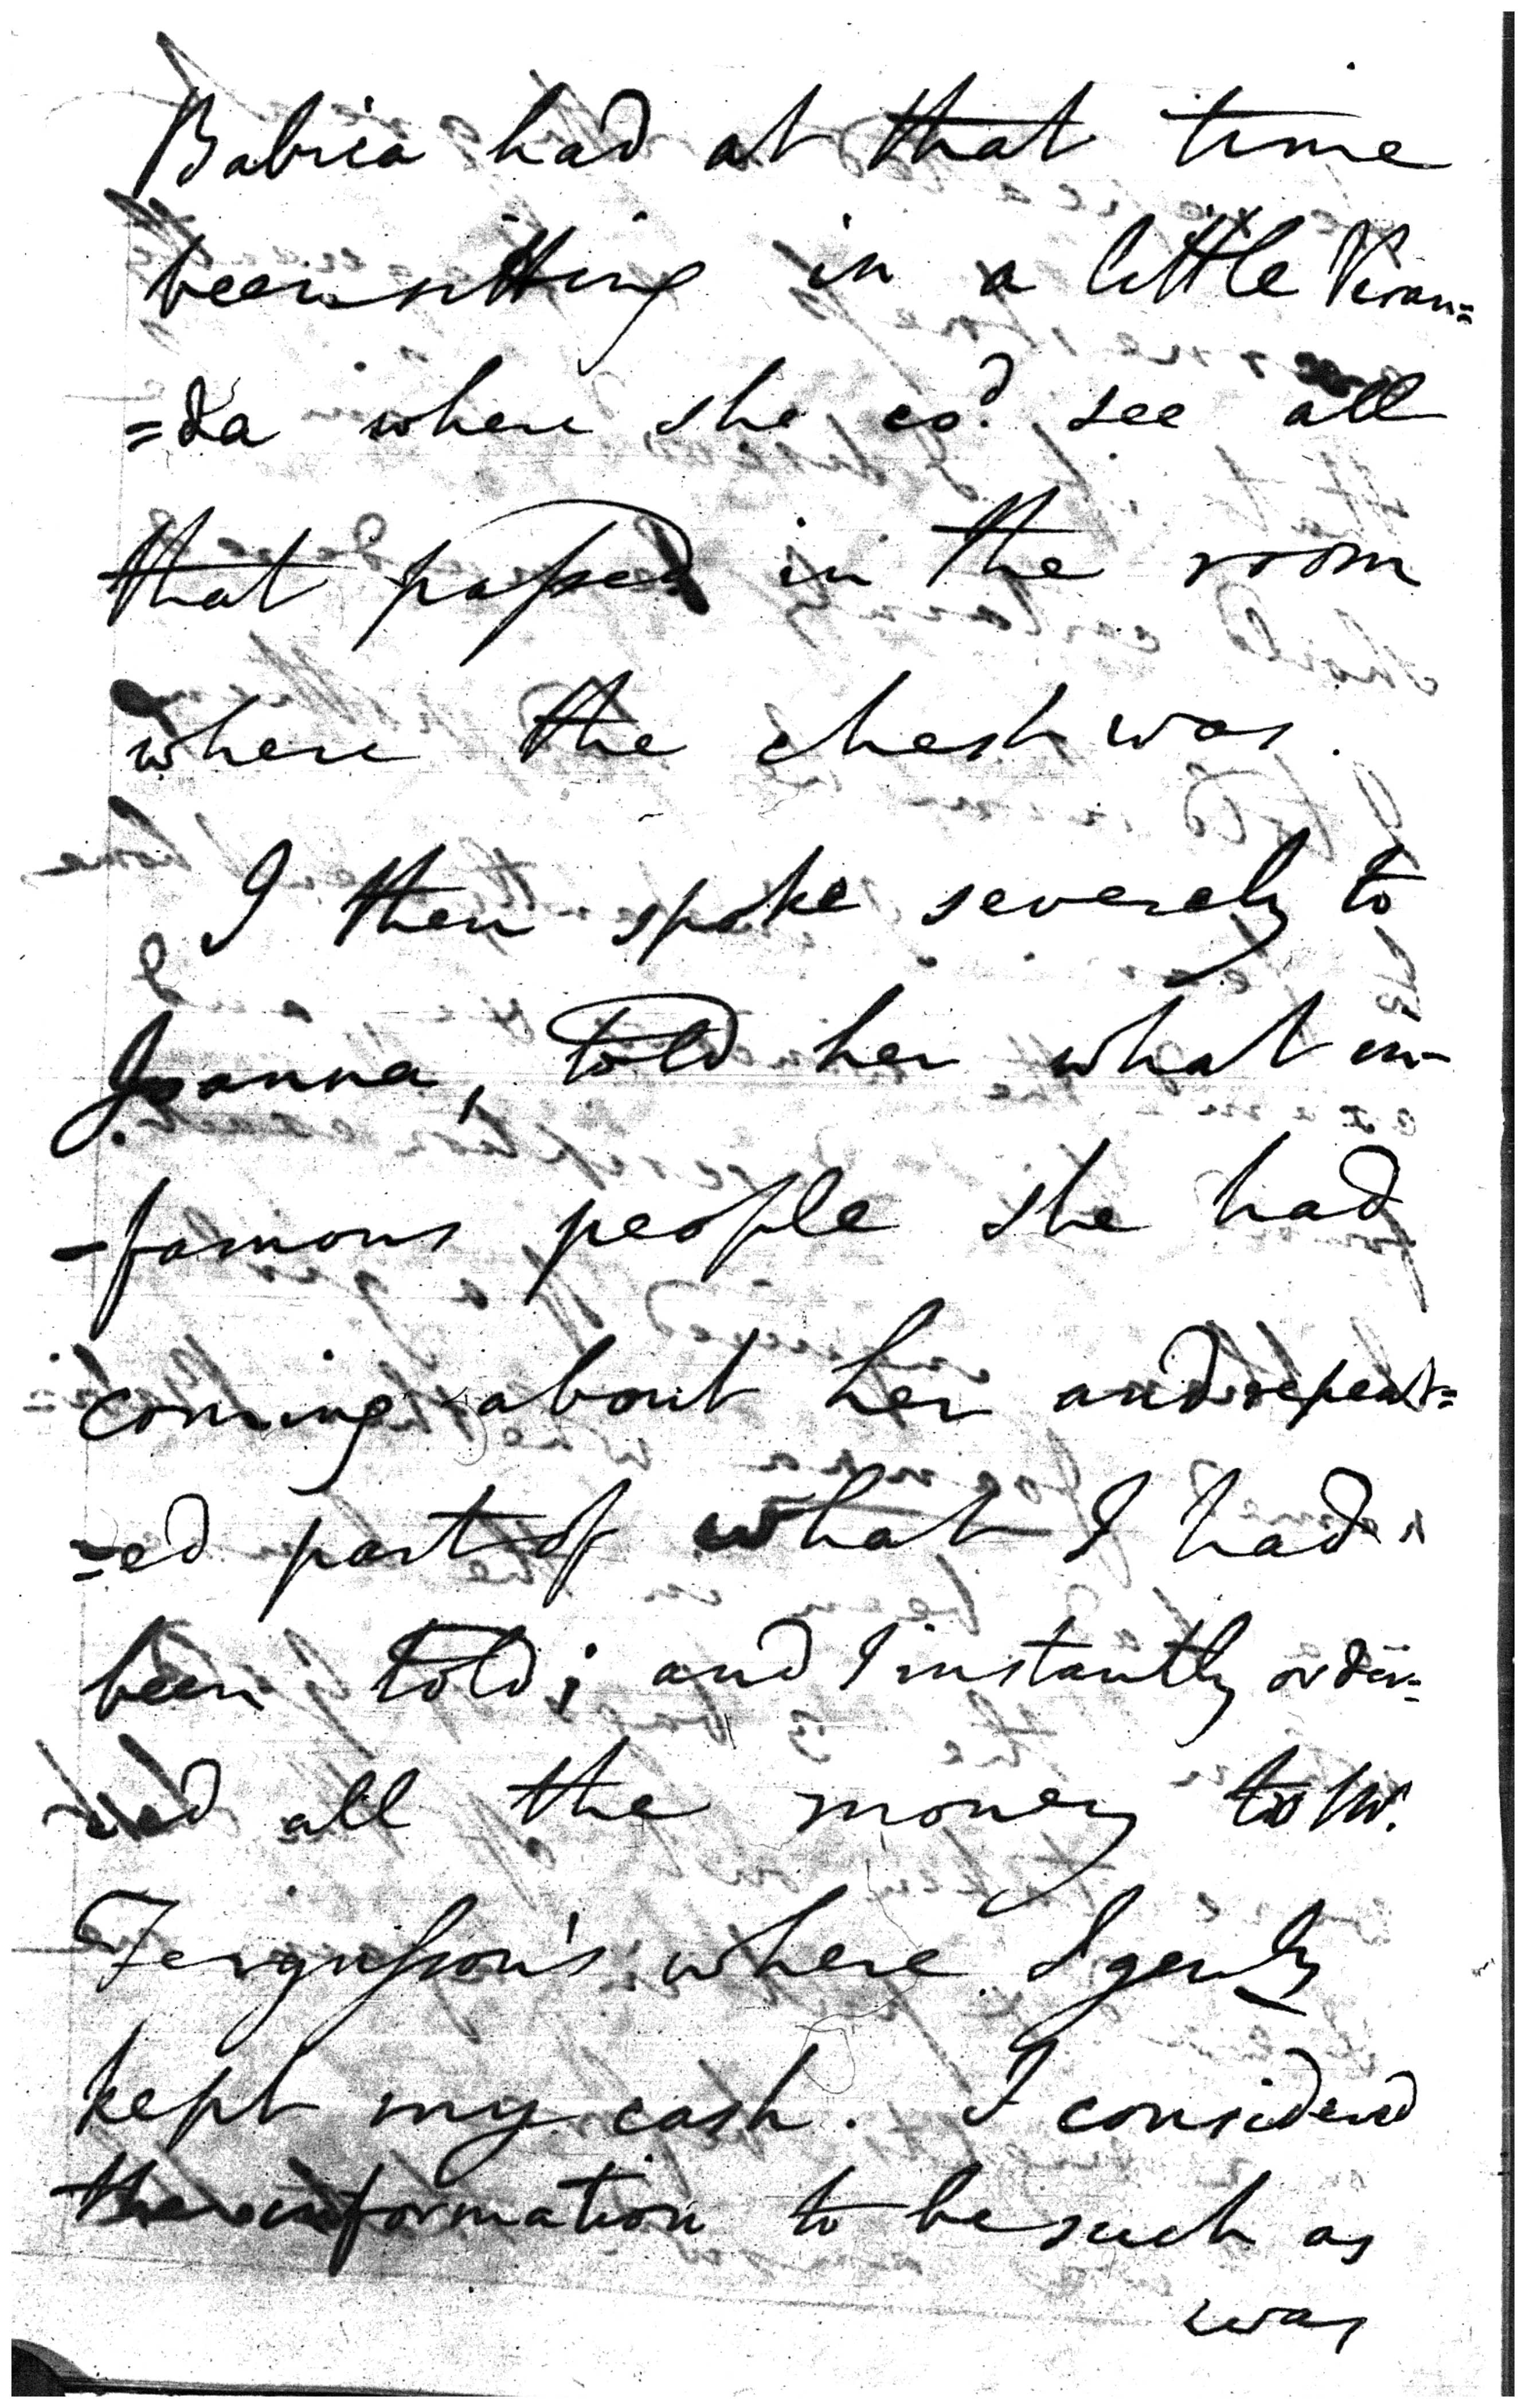 Babica had at that time
been sitting in a little Veran=
=da where she cod. see all
that passed in the room
where the chest was.
I then spoke severely to
Joanna, told her what in-
-famous people she had
coming about her and repeat=
=ed part of what I had
been told; and I instantly order=
=ed all the money to Mr.
Fergusson's where I genly
kept my cash. I considered
the information to be such as
was